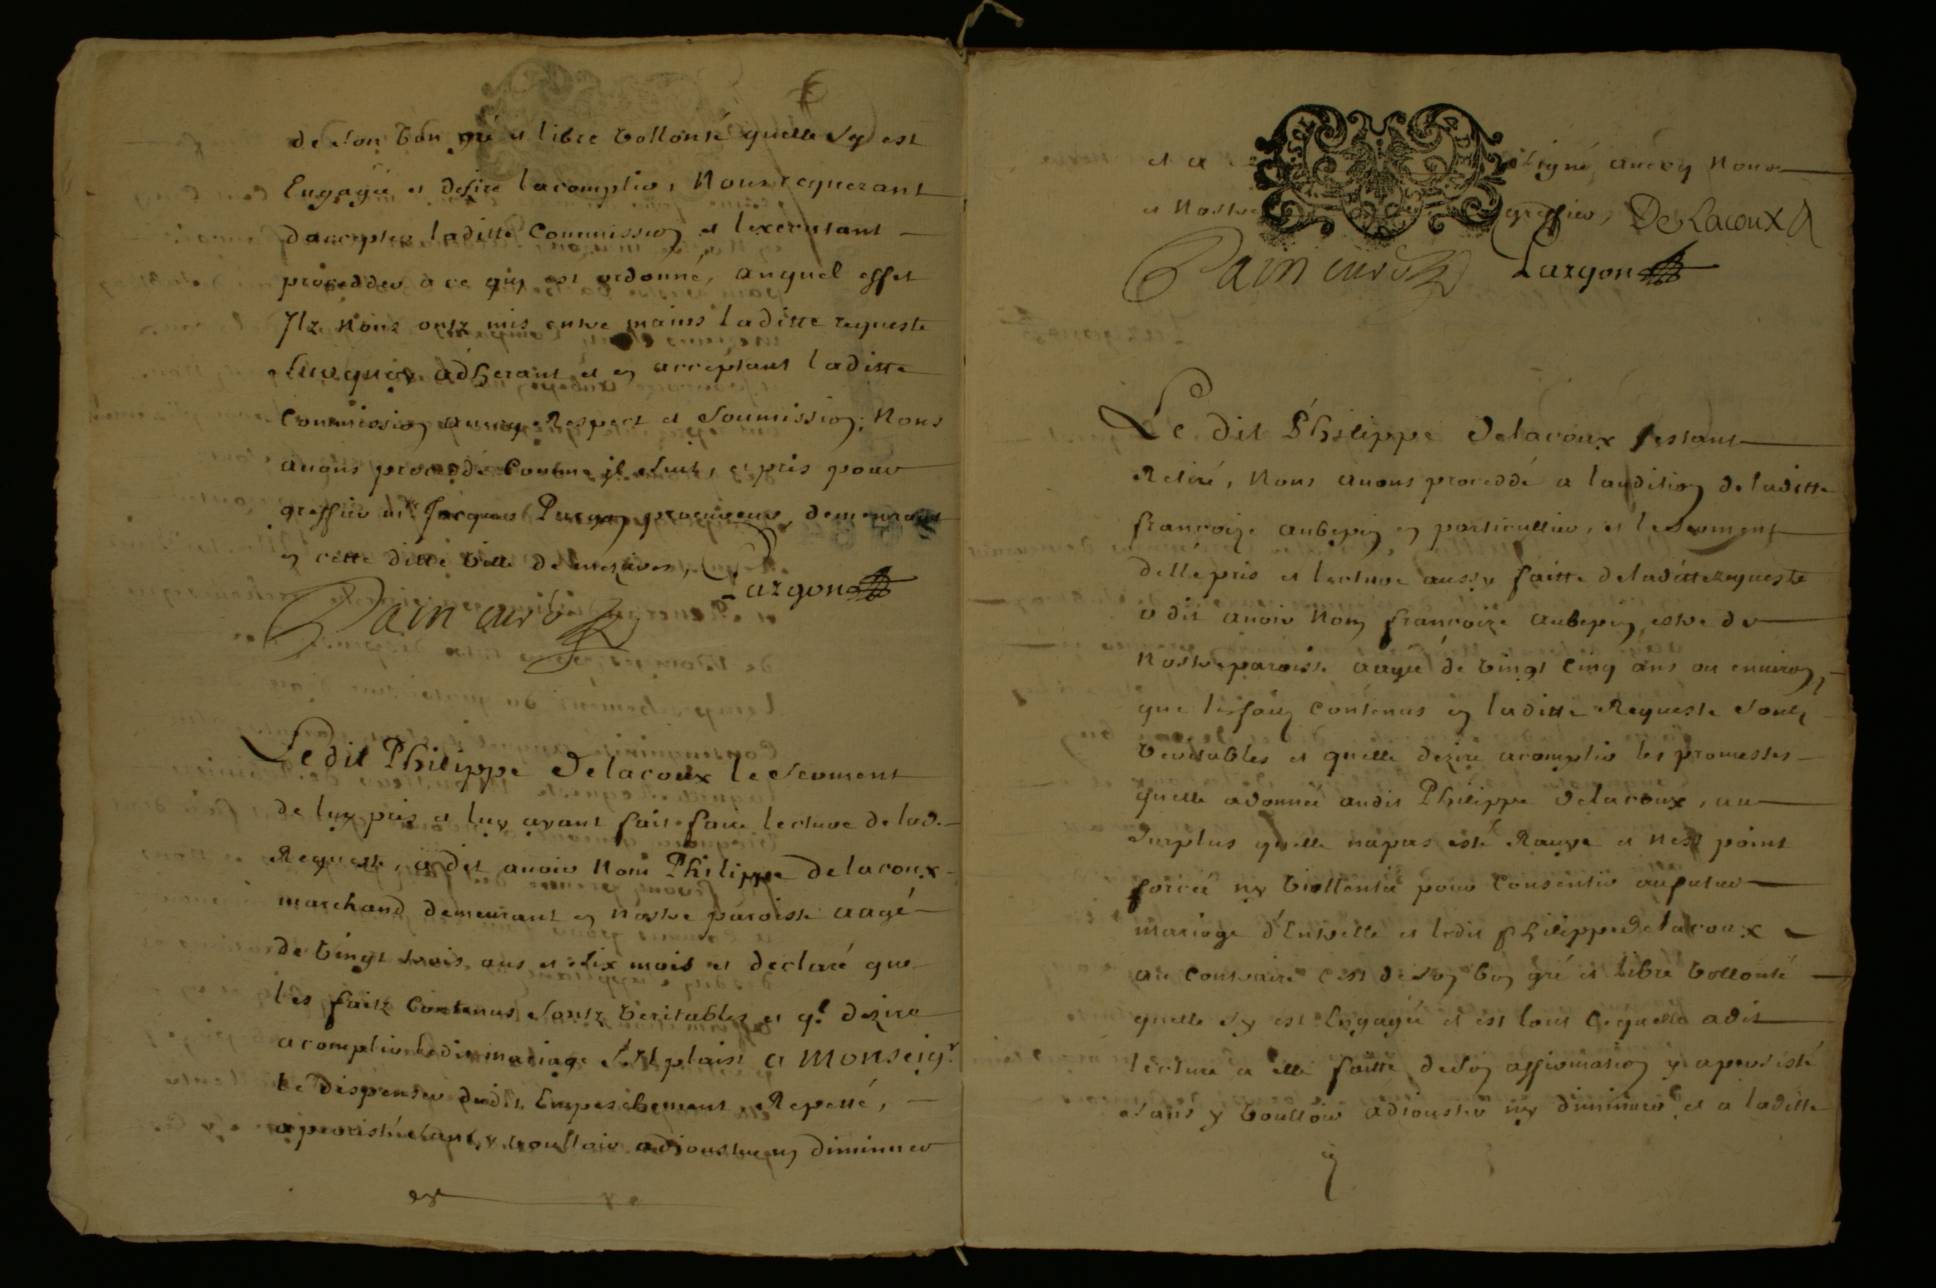 de son bon gré et libre vollonté quelle sy est
Engagée et desire lacomplir, Nous requerant
daccepter laditte Commission et lexecutant
procedder a ce quy est ordonné, auquel effet
Ilz nous ontz mis entre mains laditte requeste
adherant et en acceptant laditte
Commission avecq Respect et soumission; Nous
auons proceddé comme il suit, et pris pour
greffier Me Jacques Pargon procureur, demeurant
en cette ditte ville de
Pargon
Pain curé
Ledit Philippe Delacoux le serment
de luy pris et luy ayant fait faire lecture de lad.
Requeste, a dit auoir Nom Philippe Delacoux
marchand demeurant en nostre paroisse aagé
de vingt trois ans et six mois et declaré que
les faitz contenus sontz veritables et ql dezire
acomplir ledit mariage S'il plaist a Monseigr
le dispenser dudit Empeschement, Repetté,
a persisté sans y voulloir adjouster ny diminuer
et a signé auecq Nous
et Nostre greffier, DeLacoux
Pain curé Pargon
Le dit Philippe Delacoux sestant
Retiré, Nous auons proceddé a laudition de laditte
françoize aubepin en particullier, et le serment
delle pris et lecture aussy faitte de laditte requeste
a dit auoir Nom françoize aubepin, estre de
Nostre paroisse aagée de vingt cinq ans ou environ,
que les faitz contenus en laditte Requeste sontz
veritables et quelle dezire acomplir les promesses
quelle a donnée audit Philippe Delacoux, au
surplus quelle na pas esté Rauye et nest point
forcée ny viollentée pour consentir au futur
mariage d'Entrelle et ledit Philippe Delacoux
au contraire cest de son bon gré et libre vollonté
quelle sy est Engagée et est tout ce quelle a dit
lecture a elle faitte de son affirmation y a persisté
sans y voulloir adjouster ny diminuer, et a laditte